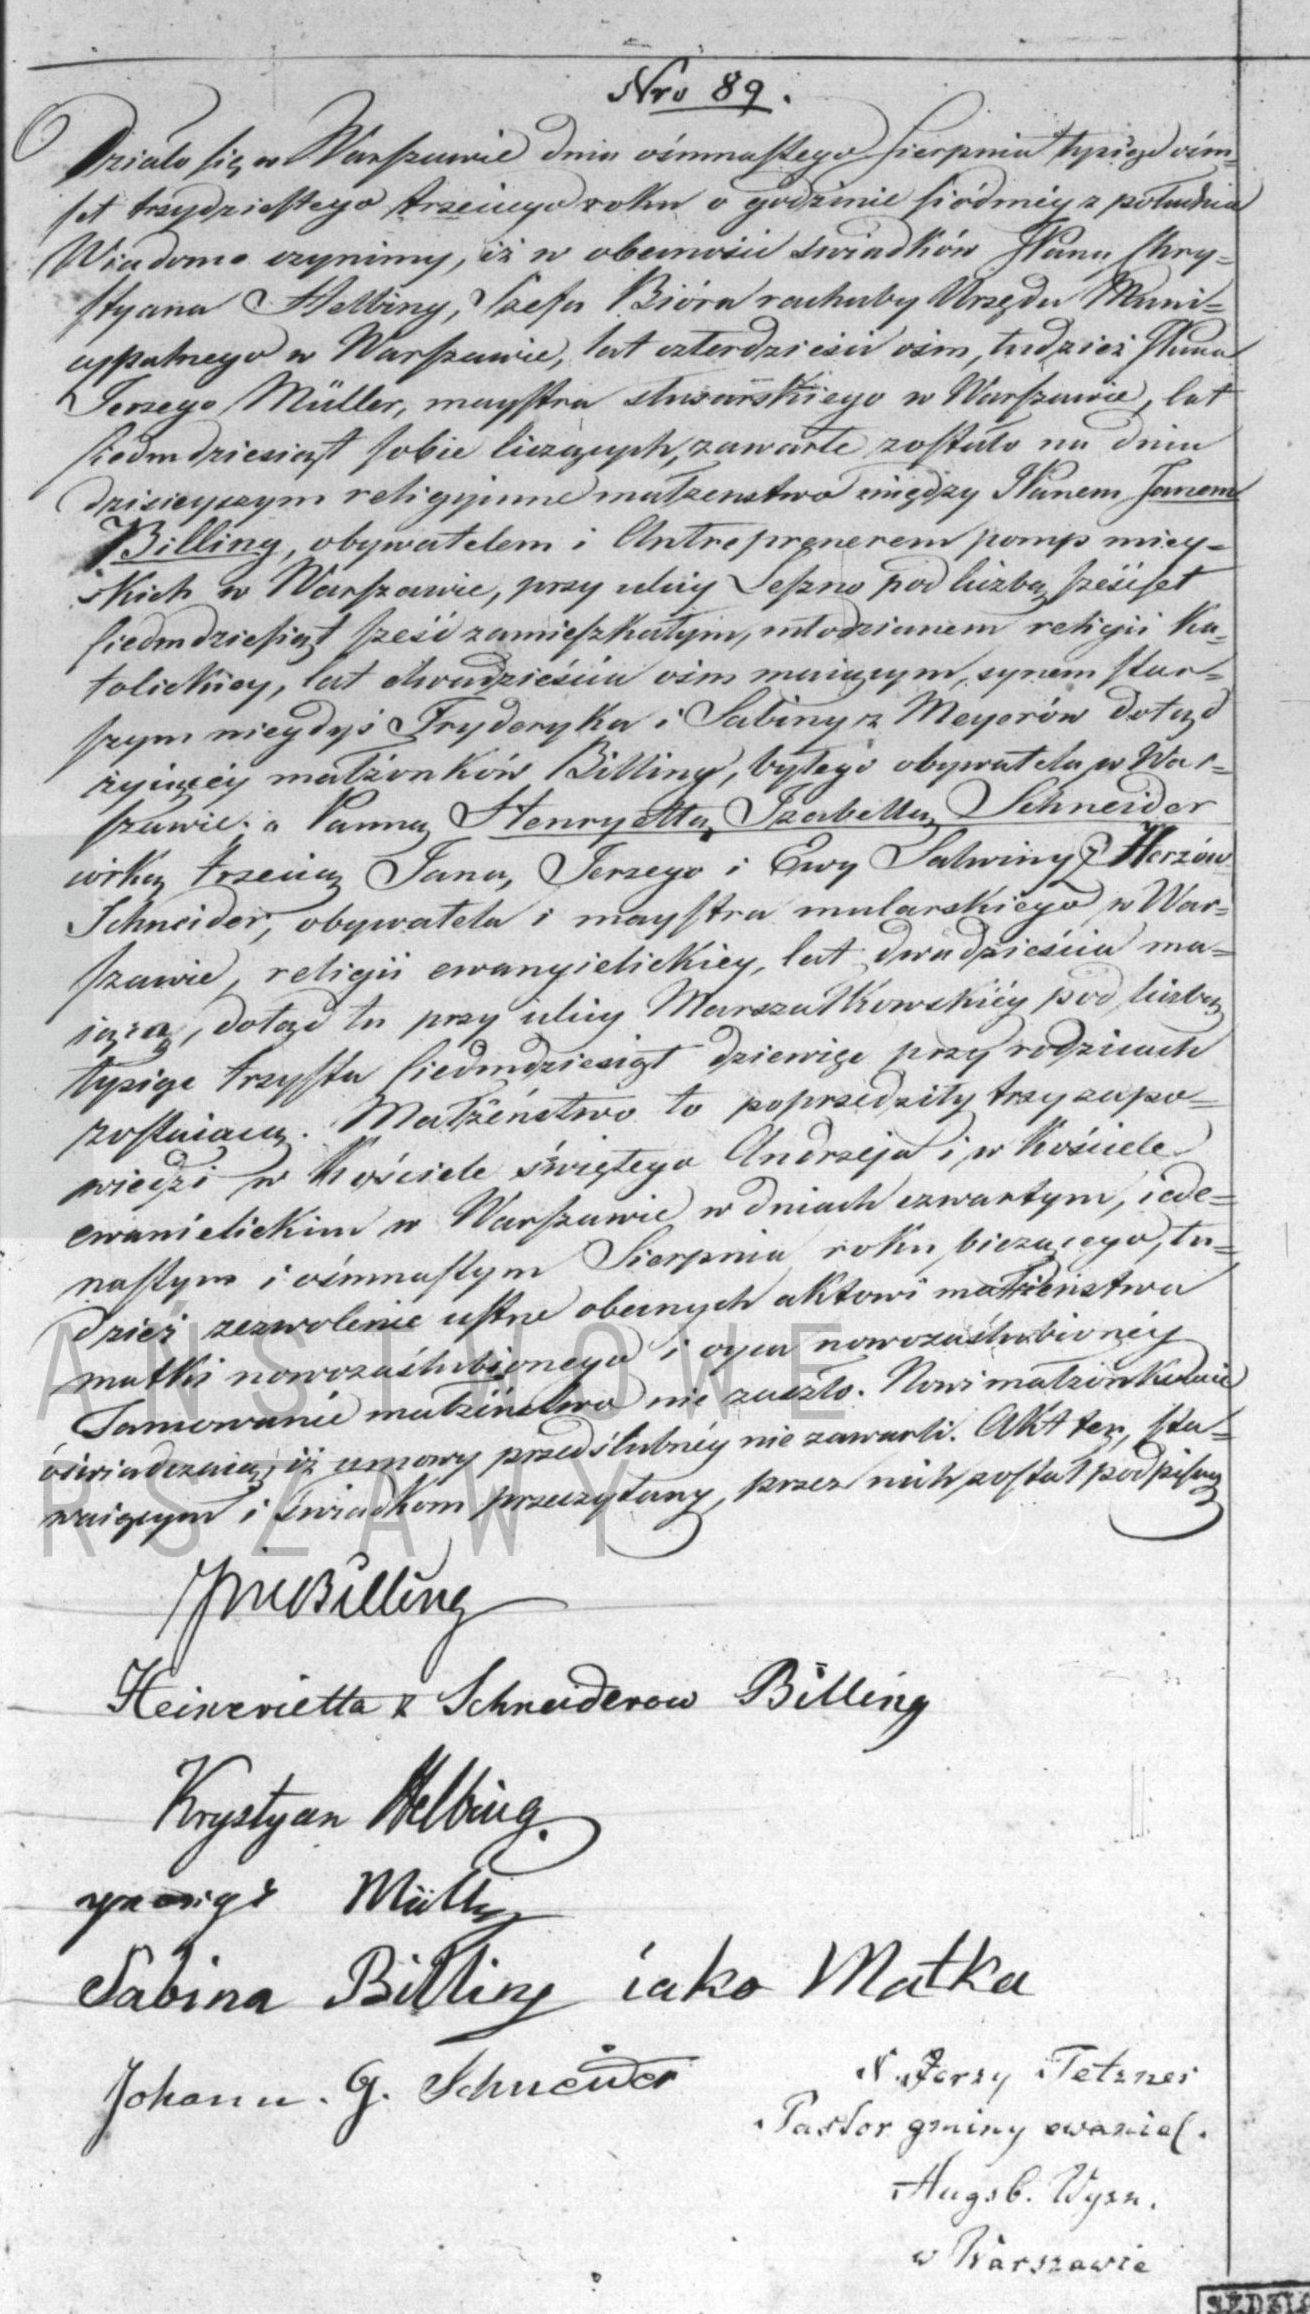 Nro 89.
Działo się w Warszawie dnia ośmnastego Sierpnia tysiąc ośm=
set trzydziestego trzeciego roku o godzinie siódméy z południa
Wiadomo czynimy, iż w obecności świadków Pana Kry=
styana Helbing, Szefa Bióra rachuby Urzędu Muni=
cypalnego w Warszawie, lat czterdzieści ośm, tudzież Pana
Jerzego Müller, maystra slusarskiego w Warszawie, lat
siedmdziesiąt sobie liczących, zawarte zostało na dniu
dzisieyszym religijne małżenstwo między Panem Janem
Billing, obywatelem i Antreprenerem pomp miey=
skich w Warszawie, przy ulicy Leszno pod liczbą sześćset
siedmdziesiąt sześć zamieszkałym, młodzianem religii Ka=
tolickiey, lat dwadzieścia ośm maiącym, synem star=
szym niegdyś Fryderyka i Sabiny z Meyerów dotąd
żyiącéy małżonków Billing, byłego obywatela w War=
szawie; a Panną Henryettą Izabellą Schneider
córką trzecią Jana, Jerzego i Ewy Salwiny z Herzów
Schneider, obywatela i maystra mularskiego w War=
szawie, religii ewangielickiey, lat dwadzieścia ma=
iącą, dotąd tu przy ulicy Marszałkowskiéy pod liczbą
tysiąc trzysta siedmdziesiąt dziewięć przy rodzicach
zostaiącą. Małżeństwo to poprzedziły trzy zapo=
wiedzi w Kościele świętego Andrzeja i w Kościele
ewanielickim w Warszawie w dniach czwartym, iede=
nastym i ośmnastym Sierpnia roku bieżącego, tu=
dzież zezwolenie ustne obecnych aktowi małżeństwa
matki nowozaślubionego i oyca nowozaślubionéy
Tamowanie małżeństwa nie zaszło. Nowi małżonkowie
oświadczaią, iż umowy przedślubnéy nie zawarli. Akt ten, sta=
waiącym i świadkom przeczytany, przez nich został podpisany
Billing
Heinerietta z Schneiderow Billing
Krystyan Helbing
Müller
Sabina Billing iako Matka
Johann. G. Schneider
Jerzy Tetzner
Pastor gminy ewaniel.
Augsb. Wyzn.
w Warszawie
AŃSTWOWE
RSZAWY